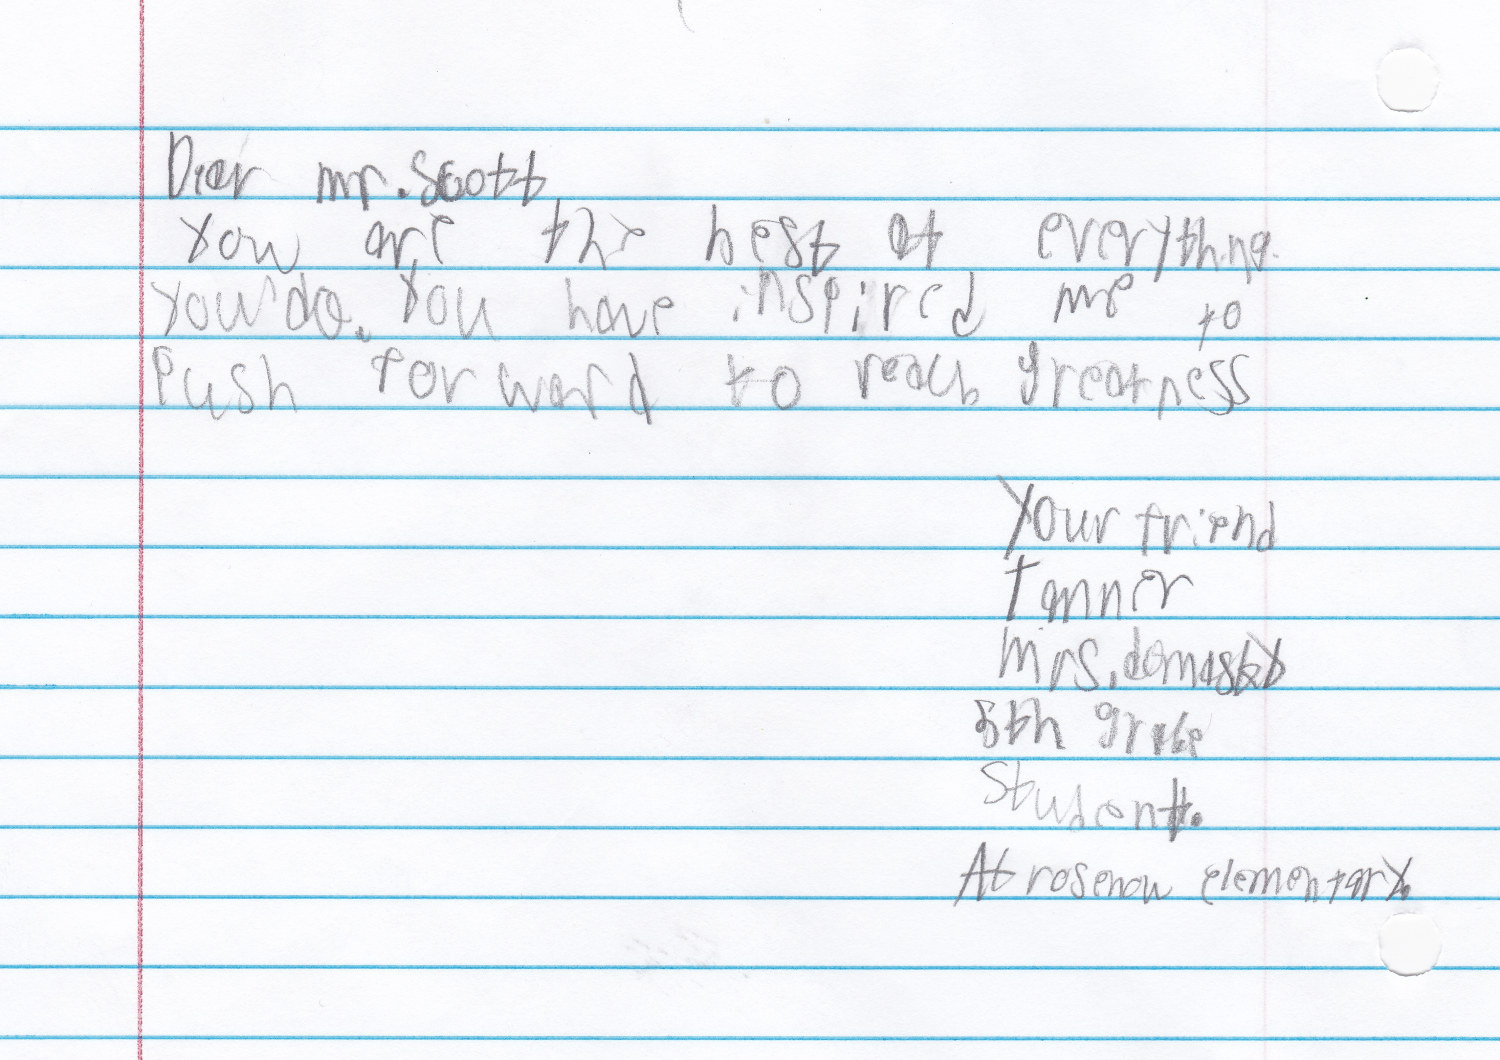 Dear mr. Scott
You are the best at everything.
You do. You have inspired me to
Push forward to reach greatness
Your friend
Tanner
Mrs. domasky
5th grade
Student.
At rosenow elementary.